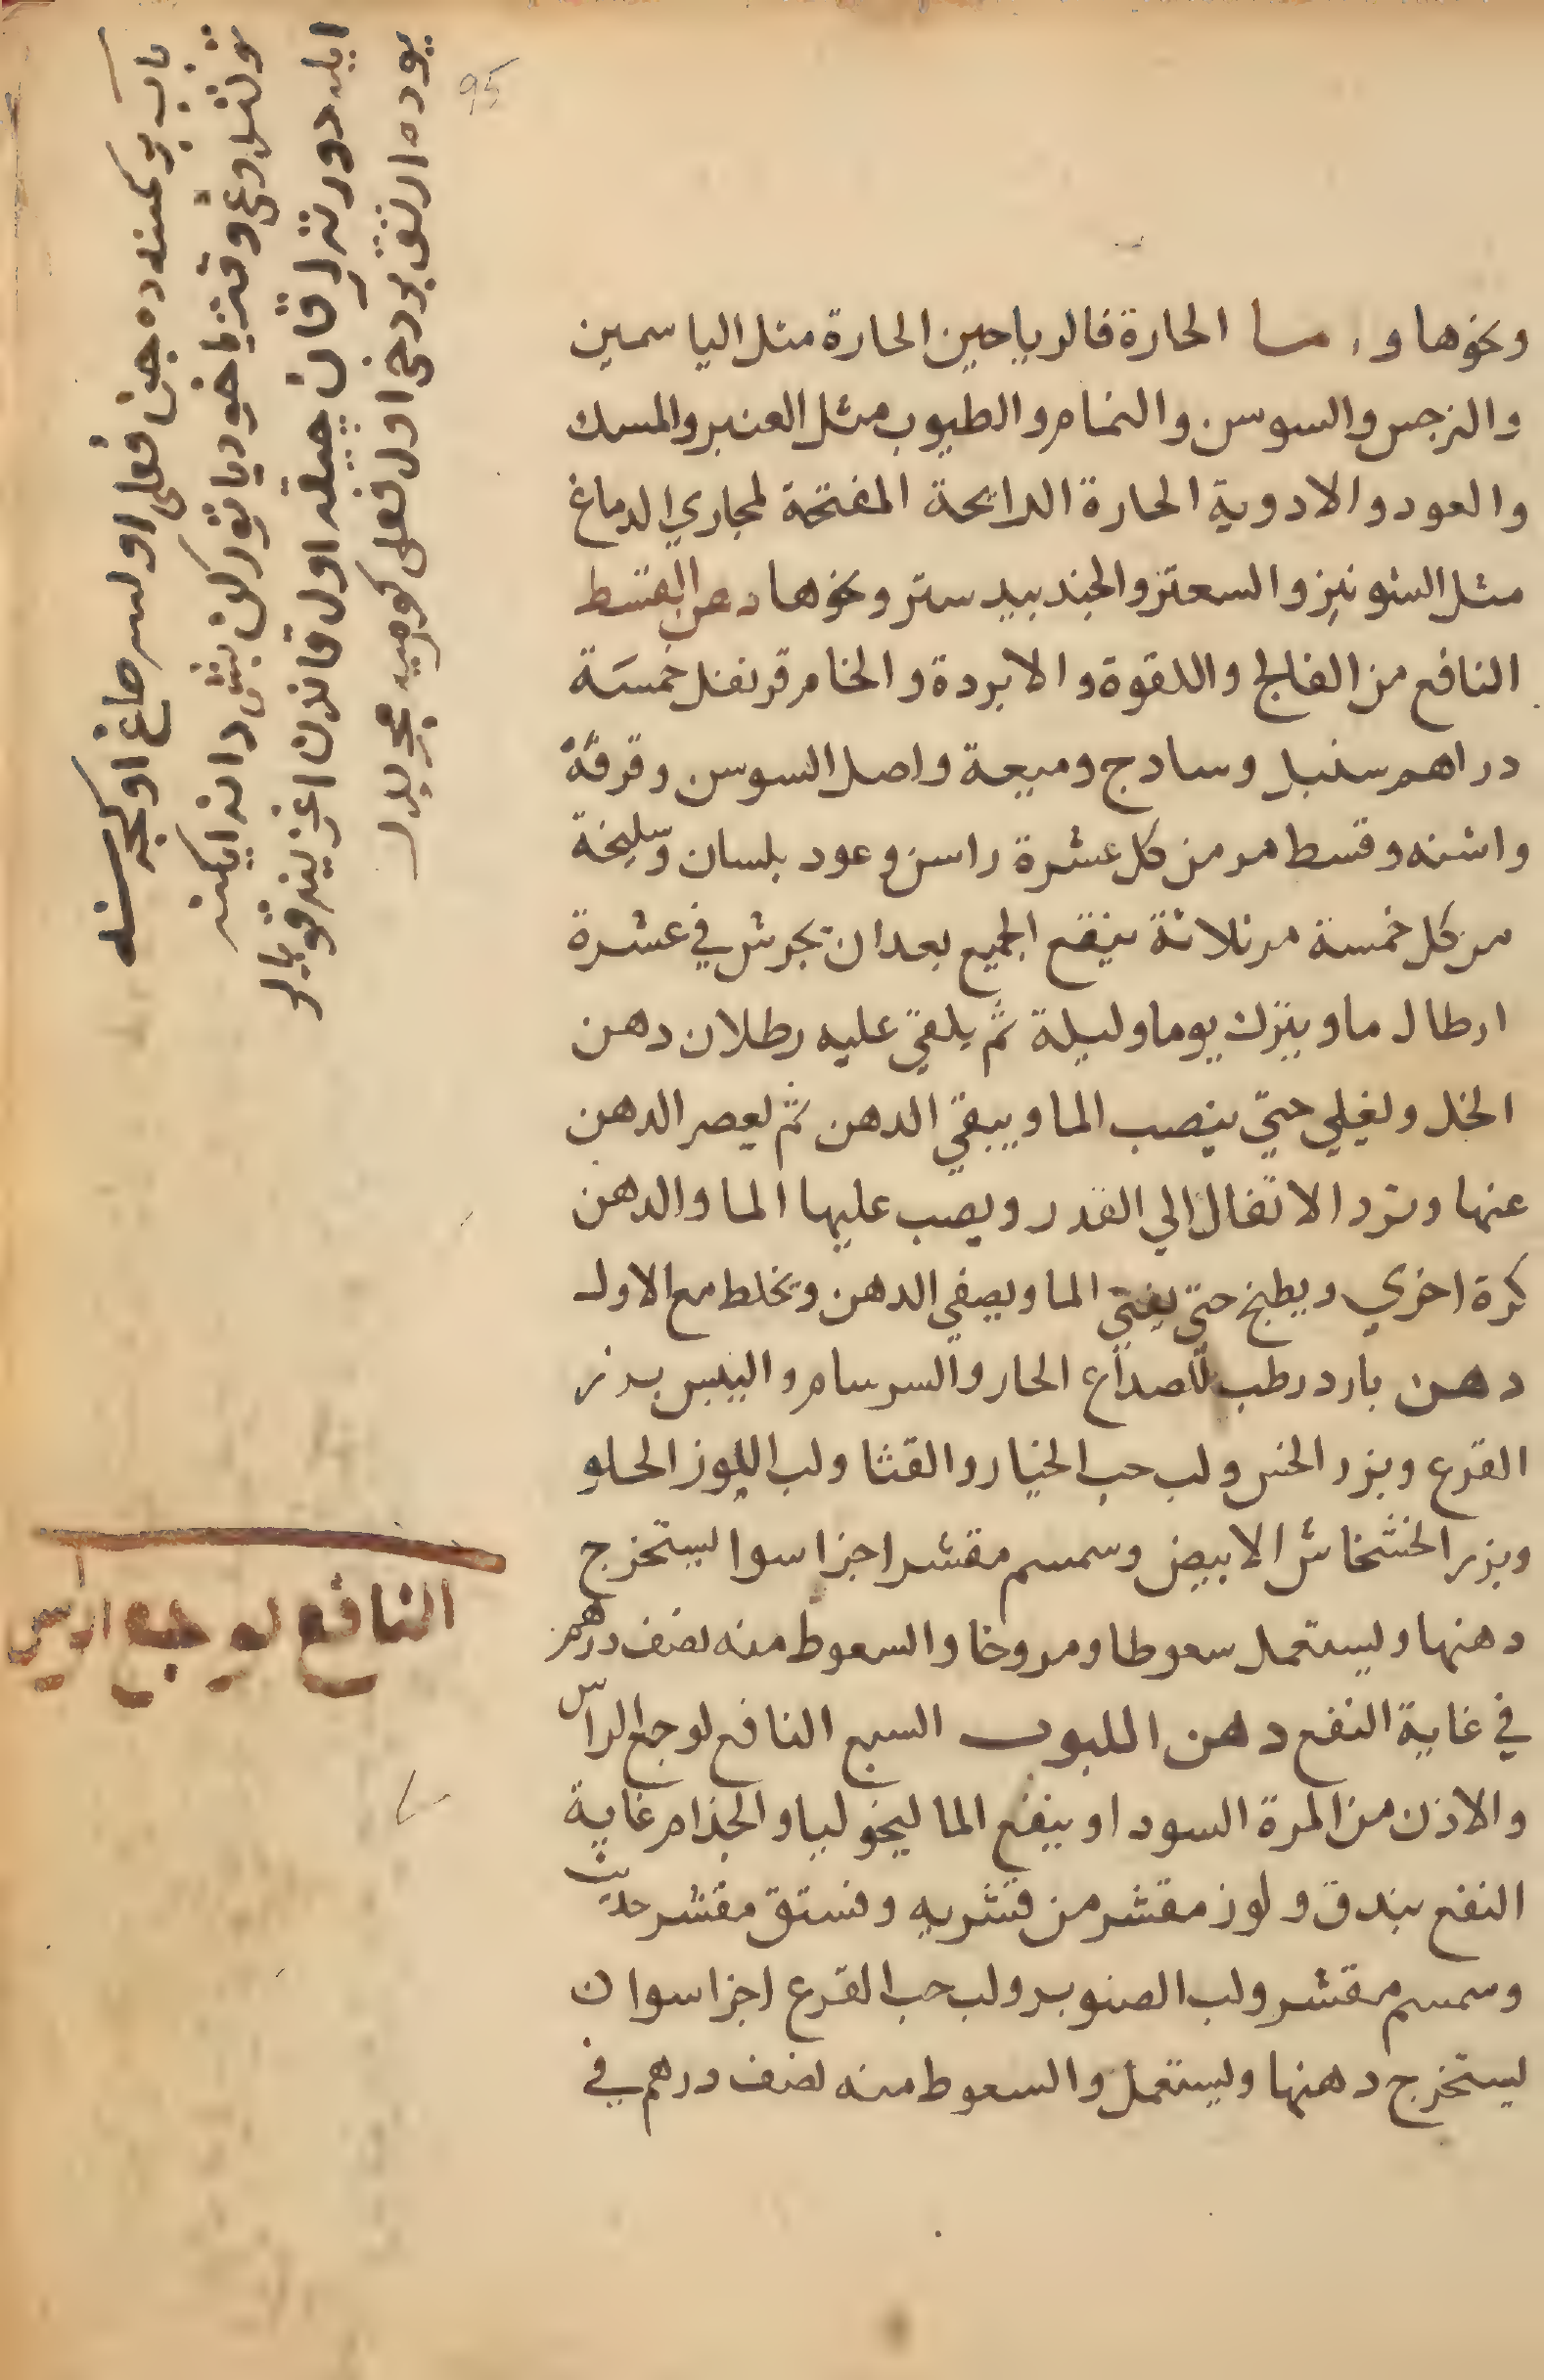 95
ونحوها واما الحارة فالرياحين الحارة مثل الياسمين
والنرجس والسوسن والنمام والطيوب مثل العنبر والمسك
والعود والادوية الحارة الرايحة المفتحة لمجاري الدماغ
مثل الشونيز والسعتر والجندبيدستر ونحوها دهن القسط
النافع من الفالج واللقوة والابردة والخام قرنفل خمسة
دراهم سنبل وسادج وميعة واصل السوسن وقرفة
واشنه وقسط مر من كل عشرة راسن وعود بلسان وسليخة
من كل خمسة مر ثلاثة ينقع الجميع بعد ان يجرش في عشرة
ارطال ما ويترك يوما وليلة ثم يلقي عليه رطلان دهن
الخل ويغلي حتي ينصب الما ويبقي الدهن ثم يعصر الدهن
عنها وترد الاثفال الي القدر ويصب عليها الما والدهن
كرة اخري ويطبخ حتي يفني الما ويصفي الدهن ويخلط مع الاول
دهن بارد رطب للصداع الحار والسرسام واليبس بزر
القرع وبزر الخس ولب حب الخيار والقثا ولب اللوز الحلو
وبزر الخشخاش الابيض وسمسم مقشر اجزا سوا يستخرج
دهنها ويستعمل سعوطا ومروخا والسعوط منه نصف درهم
في غاية النفع دهن اللبوب السبع النافع لوجع الراس
والاذن من المرة السودا وينفع الماليخوليا والجذام غاية
النفع بندق ولوز مقشر من قشريه وفستق مقشر حديث
وسمسم مقشر ولب الصنوبر ولب حب القرع اجزا سوا ن
يستخرج دهنها ويستعمل والسعوط منه نصف درهم في
النافع لوجع الراس
باب بر كمسنه ده جن فعلى اولسه صاغ اوكجه سنه
ايله دورتر قان چيقه اول قاندن اغزينه
يوده ارتق بودخى اول فعلى كورميه مجربدر